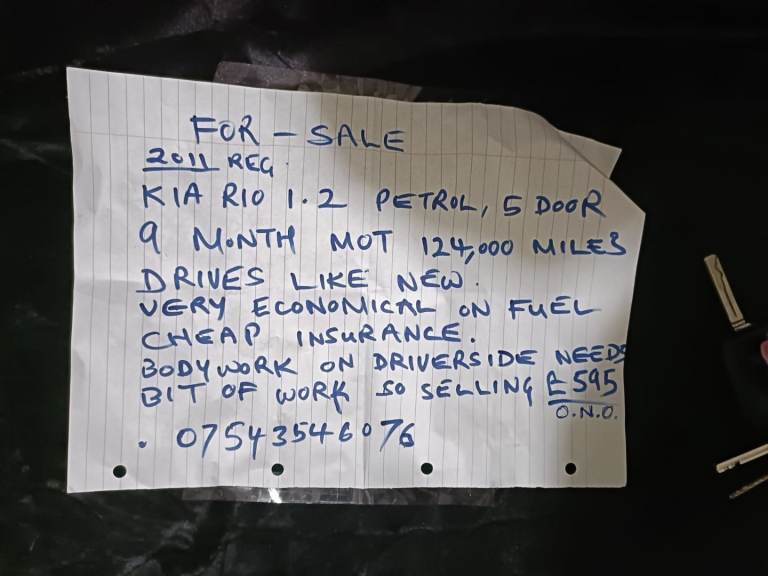 FOR - SALE
2011 REG.
KIA RIO 1.2 PETROL, 5 DOOR
9 MONTH MOT 124,000 MILES
DRIVES LIKE NEW.
VERY ECONOMICAL ON FUEL
CHEAP INSURANCE.
BODYWORK ON DRIVERSIDE NEEDS
BIT OF WORK SO SELLING £595
O.N.O.
. 07543546076